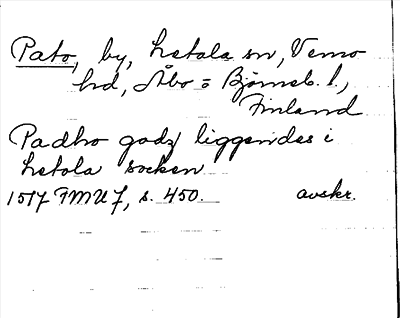 Pato, by, Letala sn, Vemo
hd, Åbo o Björneb. l,
Finland
Padho godz liggendes i
Letala socken
1517 FMU 7, s. 450. avskr.